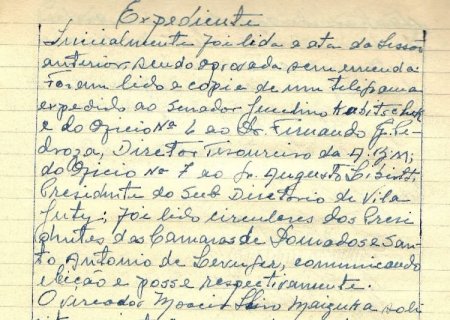 Expediente
Inicialmente foi lida a ata da sessão
anterior, sendo aprovada sem emenda.
Foram lido a copia de um telegrama
expedido ao Senador Juscelino Kubitschek
e do Oficio Nº 6 ao Dr. Fernando G.
Diretor Tesoureiro da
do Oficio Nº 7 ao Sr. Augusto
Presidente do Sub Diretorio de Vila
foi lido circulares dos Presi
dentes das Camaras de Dourados e San-
to Antonio de Leverger, comunicando
eleição e posse respectivamente.
O vereador Moacir